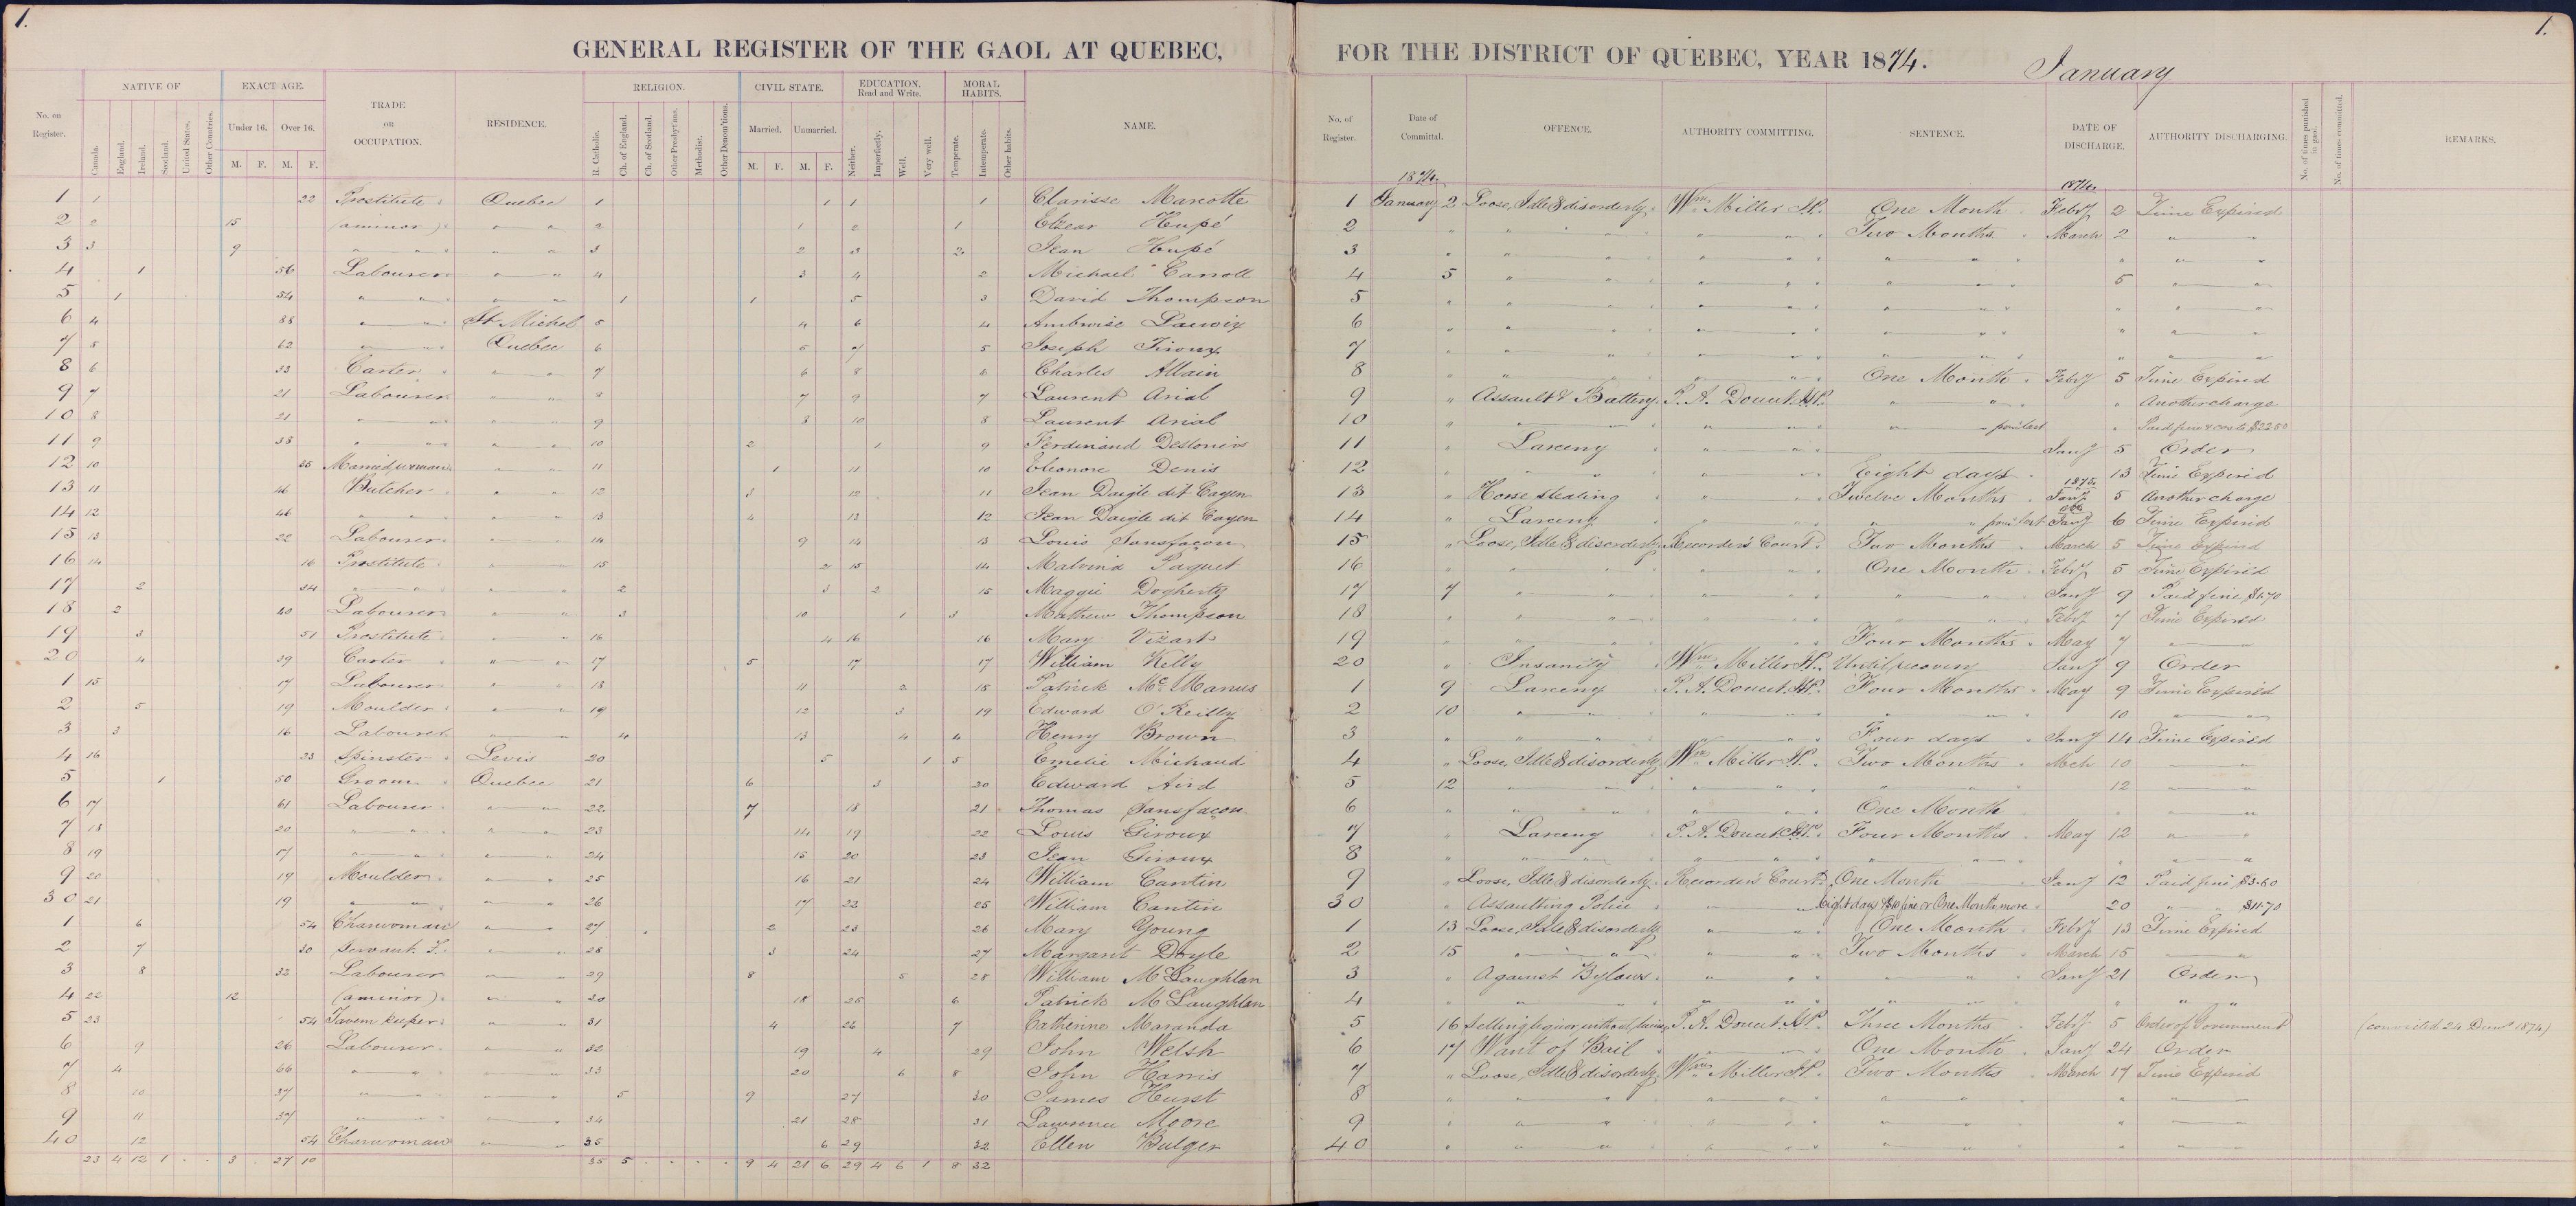 1.
GENERAL REGISTER OF THE GAOL AT QUEBEC,
No. on Register.
NATIVE OF
Canada. England. Ireland. Scotland. United States. Other Countries.
EXACT AGE.
Under 16. Over 16.
M. F. M. F.
TRADE OR OCCUPATION.
RESIDENCE.
RELIGION.
R. Catholic. Ch. of England. Ch. of Scotland. Other Presbyt'ans. Methodist. Other Denom'tions.
CIVIL STATE.
Married. Unmarried.
M. F. M. F.
EDUCATION. Read and Write.
Neither. Imperfectly. Well. Very well.
MORAL HABITS.
Temperate. Intemperate. Other habits.
NAME.
1 1 22 Prostitute Quebec 1 1 1 1 Clarisse Marcotte
2 2 15 (a minor) " " 2 1 2 1 Elzear Hupé
3 3 9 " " " " 3 2 3 2 Jean Hupé
4 1 56 Labourer " " 4 3 4 2 Michael Carroll
5 1 54 " " " " 1 1 5 3 David Thompson
6 4 88 " " St Michel 5 4 6 4 Ambroise Lacroix
7 5 62 " " Quebec 6 5 7 5 Joseph Giroux
8 6 33 Carter " " 7 6 8 6 Charles Allain
9 7 21 Labourer " " 8 7 9 7 Laurent Arial
10 8 21 " " " " 9 8 10 8 Laurent Arial
11 9 38 " " " " 10 2 1 9 Ferdinand
12 10 35 Married woman " " 11 1 11 10 Eleonore Denis
13 11 46 Butcher " " 12 3 12 11 Jean Daigle dit Cayen
14 12 46 " " " " 13 4 13 12 Jean Daigle dit Cayen
15 13 22 Labourer " " 14 9 14 13 Louis Sansfaçon
16 14 16 Prostitute " " 15 2 15 14 Malvina Paquet
17 2 34 " " " " 2 3 2 15 Maggie Dogherty
18 2 40 Labourer " " 3 10 1 3 Mathew Thompson
19 3 51 Prostitute " " 16 4 16 16 Mary Vizart
20 4 39 Carter " " 17 5 17 17 William Kelly
1 15 17 Labourer " " 18 11 2 18 Patrick McManus
2 5 19 Moulder " " 19 12 3 19 Edward O'Reilly
3 3 16 Labourer " " 4 13 4 4 Henry Brown
4 16 23 Spinster Levis 20 5 1 5 Emelie Michaud
5 1 50 Groom Quebec 21 6 3 20 Edward Aird
6 17 61 Labourer " " 22 7 18 21 Thomas Sansfaçon
7 18 20 " " " " 23 14 19 22 Louis Giroux
8 19 17 " " " " 24 15 20 23 Jean Giroux
9 20 19 Moulder " " 25 16 21 24 William Cantin
30 21 19 " " " " 26 17 22 25 William Cantin
1 6 54 Charwoman " " 27 2 23 26 Mary Young
2 7 30 Servant F. " " 28 3 24 27 Margaret Doyle
3 8 32 Labourer " " 29 8 5 28 William McLaughlan
4 22 12 (a minor) " " 30 18 25 6 Patrick McLaughlan
5 23 54 Tavern keeper " " 31 4 26 7 Catherine Maranda
6 9 26 Labourer " " 32 19 4 29 John Welsh
7 4 66 " " " " 33 20 6 8 John Harris
8 10 37 " " " " 5 9 27 30 James Hurst
9 11 37 " " " " 34 21 28 31 Lawrence Moore
40 12 54 Charwoman " " 35 6 29 32 Ellen Bulger
23 4 12 1 . . 3 . 27 10 35 5 . . . . 9 4 21 6 29 4 6 1 8 32
1.
FOR THE DISTRICT OF QUEBEC, YEAR 1874. January
No. of Register.
Date of Committal.
OFFENCE.
AUTHORITY COMMITTING.
SENTENCE.
DATE OF DISCHARGE.
AUTHORITY DISCHARGING.
No. of times punished in gaol.
No. of times committed.
REMARKS.
1874. 1874.
1 January 2 Loose, Idle & disorderly Wm Miller J.P. One Month Feby 2 Time Expired
2 " " " " " Two Months March 2 " "
3 " " " " " " " " " "
4 5 " " " " " " 5 " "
5 " " " " " " " " " "
6 " " " " " " " " " "
7 " " " " " " " " " "
8 " " " " " One Month Feby 5 Time Expired
9 " Assault & Battery P. A. Doucet J.P. " " " Another charge
10 " " " " " " " " Paid fine & costs $22.50
11 " Larceny " " Jany 5 Order
12 " " " " " Eight days 13 Time Expired
13 " Horse stealing " " Twelve Months 1875. Jany 5 Another charge
14 " Larceny " " " " Jany 6 Time Expired
15 " Loose, Idle & disorderly Recorder's Court Two Months March 5 Time Expired
16 " " " " " One Month Feby 5 Time Expired
17 7 " " " " " " Jany 9 Paid fine $1.70
18 " " " " " " " Feby 7 Time Expired
19 " " " " " Four Months May 7 " "
20 " Insanity Wm Miller J.P. Until recovery Jany 9 Order
1 9 Larceny P. A. Doucet J.P. Four Months May 9 Time Expired
2 10 " " " " " " 10 " "
3 " " " " " Four days Jany 14 Time Expired
4 " Loose, Idle & disorderly Wm Miller J.P. Two Months Mch 10 " "
5 12 " " " " " " 12 " "
6 " " " " " One Month " " "
7 " Larceny P. A. Doucet J.P. Four Months May 12 " "
8 " " " " " " " " " "
9 " Loose, Idle & disorderly Recorder's Court One Month Jany 12 Paid fine $3.60
30 " Assaulting Police " " Eight days & $10 fine or One Month more 20 " " $11.70
1 13 Loose, Idle & disorderly " " One Month Feby 13 Time Expired
2 15 " " " " Two Months March 15 " "
3 " Against Bylaws " " " " Jany 21 Order
4 " " " " " " " " " "
5 16 Selling liquor without license P. A. Doucet J.P. Three Months Feby 5 Order of Government
6 17 Want of Bail " " One Month Jany 24 Order
7 " Loose, Idle & disorderly Wm Miller J.P. Two Months March 17 Time Expired
8 " " " " " " " " " "
9 " " " " " " " " " "
40 " " " " " " " " " "